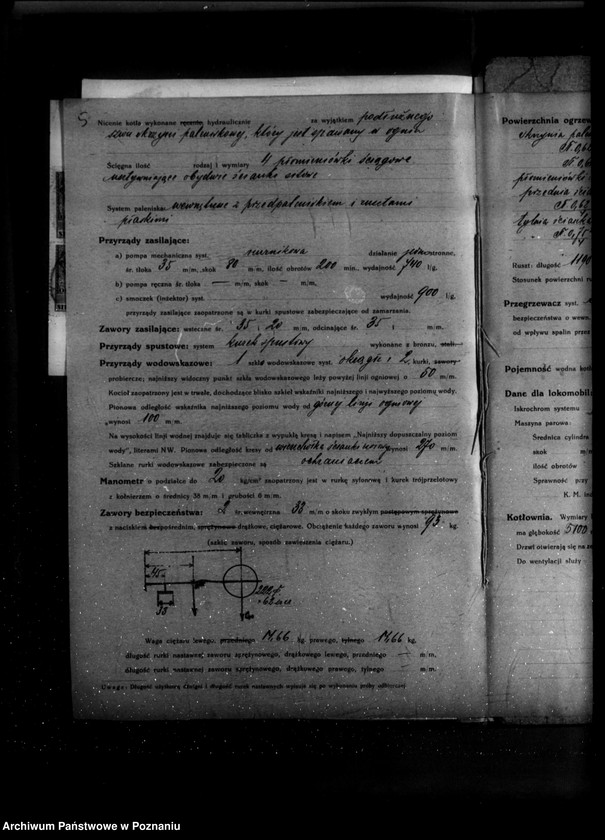 5
Nicenie kotła wykonane ręcznie, hydraulicznie za wyjątkiem podłużnego
szwu skrzyni paleniskowej, który jest spawany w ogniu
Ścięgna ilość rodzaj i wymiary 4 płomieniówki ściągowe
obydwie ścianki sitowe
System paleniska: wewnętrzne z przedpaleniskiem i rusztami
płaskimi
Przyrządy zasilające:
a) pompa mechaniczna syst. nurnikowa działanie jednostronne,
śr. tłoka 35 m/m, skok 80 m/m, ilość obrotów 200 min., wydajność 740 l/g.
b) pompa ręczna śr. tłoka — m/m, skok — m/m,
c) smoczek (inżektor) syst. wydajność 900 l/g.
przyrządy zasilające zaopatrzone są w kurki spustowe zabezpieczające od zamarzania.
Zawory zasilające: wsteczne śr. 35 i 20 m/m, odcinające śr. 35 i m/m.
Przyrządy spustowe: system kurek spustowy wykonane z bronzu,
Przyrządy wodowskazowe: 1 szkło wodowskazowe syst. okrągłe i 2 kurki, zawory
probiercze; najniższy widoczny punkt szkła wodowskazowego leży powyżej linji ogniowej o 50 m/m.
Kocioł zaopatrzony jest w trwałe, dochodzące blisko szkieł wskaźniki najniższego i najwyższego poziomu wody.
Pionowa odległość wskaźnika najniższego poziomu wody od górnej linji ogniowej
wynosi 100 m/m.
Na wysokości linji wodnej znajduje się tabliczka z wypukłą kresą i napisem „Najniższy dopuszczalny poziom
wody", literami NW. Pionowa odległość kresy od wierzchołka ścianki wynosi 270 m/m.
Szklane rurki wodowskazowe zabezpieczone są ochraniaczem
Manometr o podziałce do 20 kg/cm² zaopatrzony jest w rurkę syfonową i kurek trójprzelotowy
z kołnierzem o średnicy 38 m/m i grubości 6 m/m.
Zawory bezpieczeństwa: 2 śr. wewnętrzna 33 m/m o skoku zwykłym postępowym sprężynowe
z naciskiem bezpośrednim, sprężynowe drążkowe, ciężarowe. Obciążenie każdego zaworu wynosi 93 kg.
(szkic zaworu, sposób zawieszenia ciężaru.)
45
38
Waga ciężaru lewego, przedniego 17,66 kg. prawego, tylnego 17,66 kg.
długość rurki nastawnej zaworu sprężynowego, drążkowego lewego, przedniego — m/m.
długość rurki nastawnej zaworu sprężynowego, drążkowego prawego, tylnego — m/m.
Uwaga: Długość użytkową dźwigni i długość rurek nastawnych wpisuje się po wykonaniu próby odbiorczej
Powierzchnia ogrzew
Skrzynia pale
płomieniówki
przednia ści
tylnia ścianka
Ruszt: długość 1190
Stosunek powierzchni ru
Przegrzewacz syst.
bezpieczeństwa o wewn.
od wpływu spalin przez
Pojemność wodna kotła
Dane dla lokomobil:
Iskrochron systemu
Maszyna parowa:
Średnica cylindra
skok m
ilość obrotów
Sprawność przy
K. M. ind
Kotłownia. Wymiary
ma głębokość 5100
Drzwi otwierają się na ze
Do wentylacji służy
Archiwum Państwowe w Poznaniu